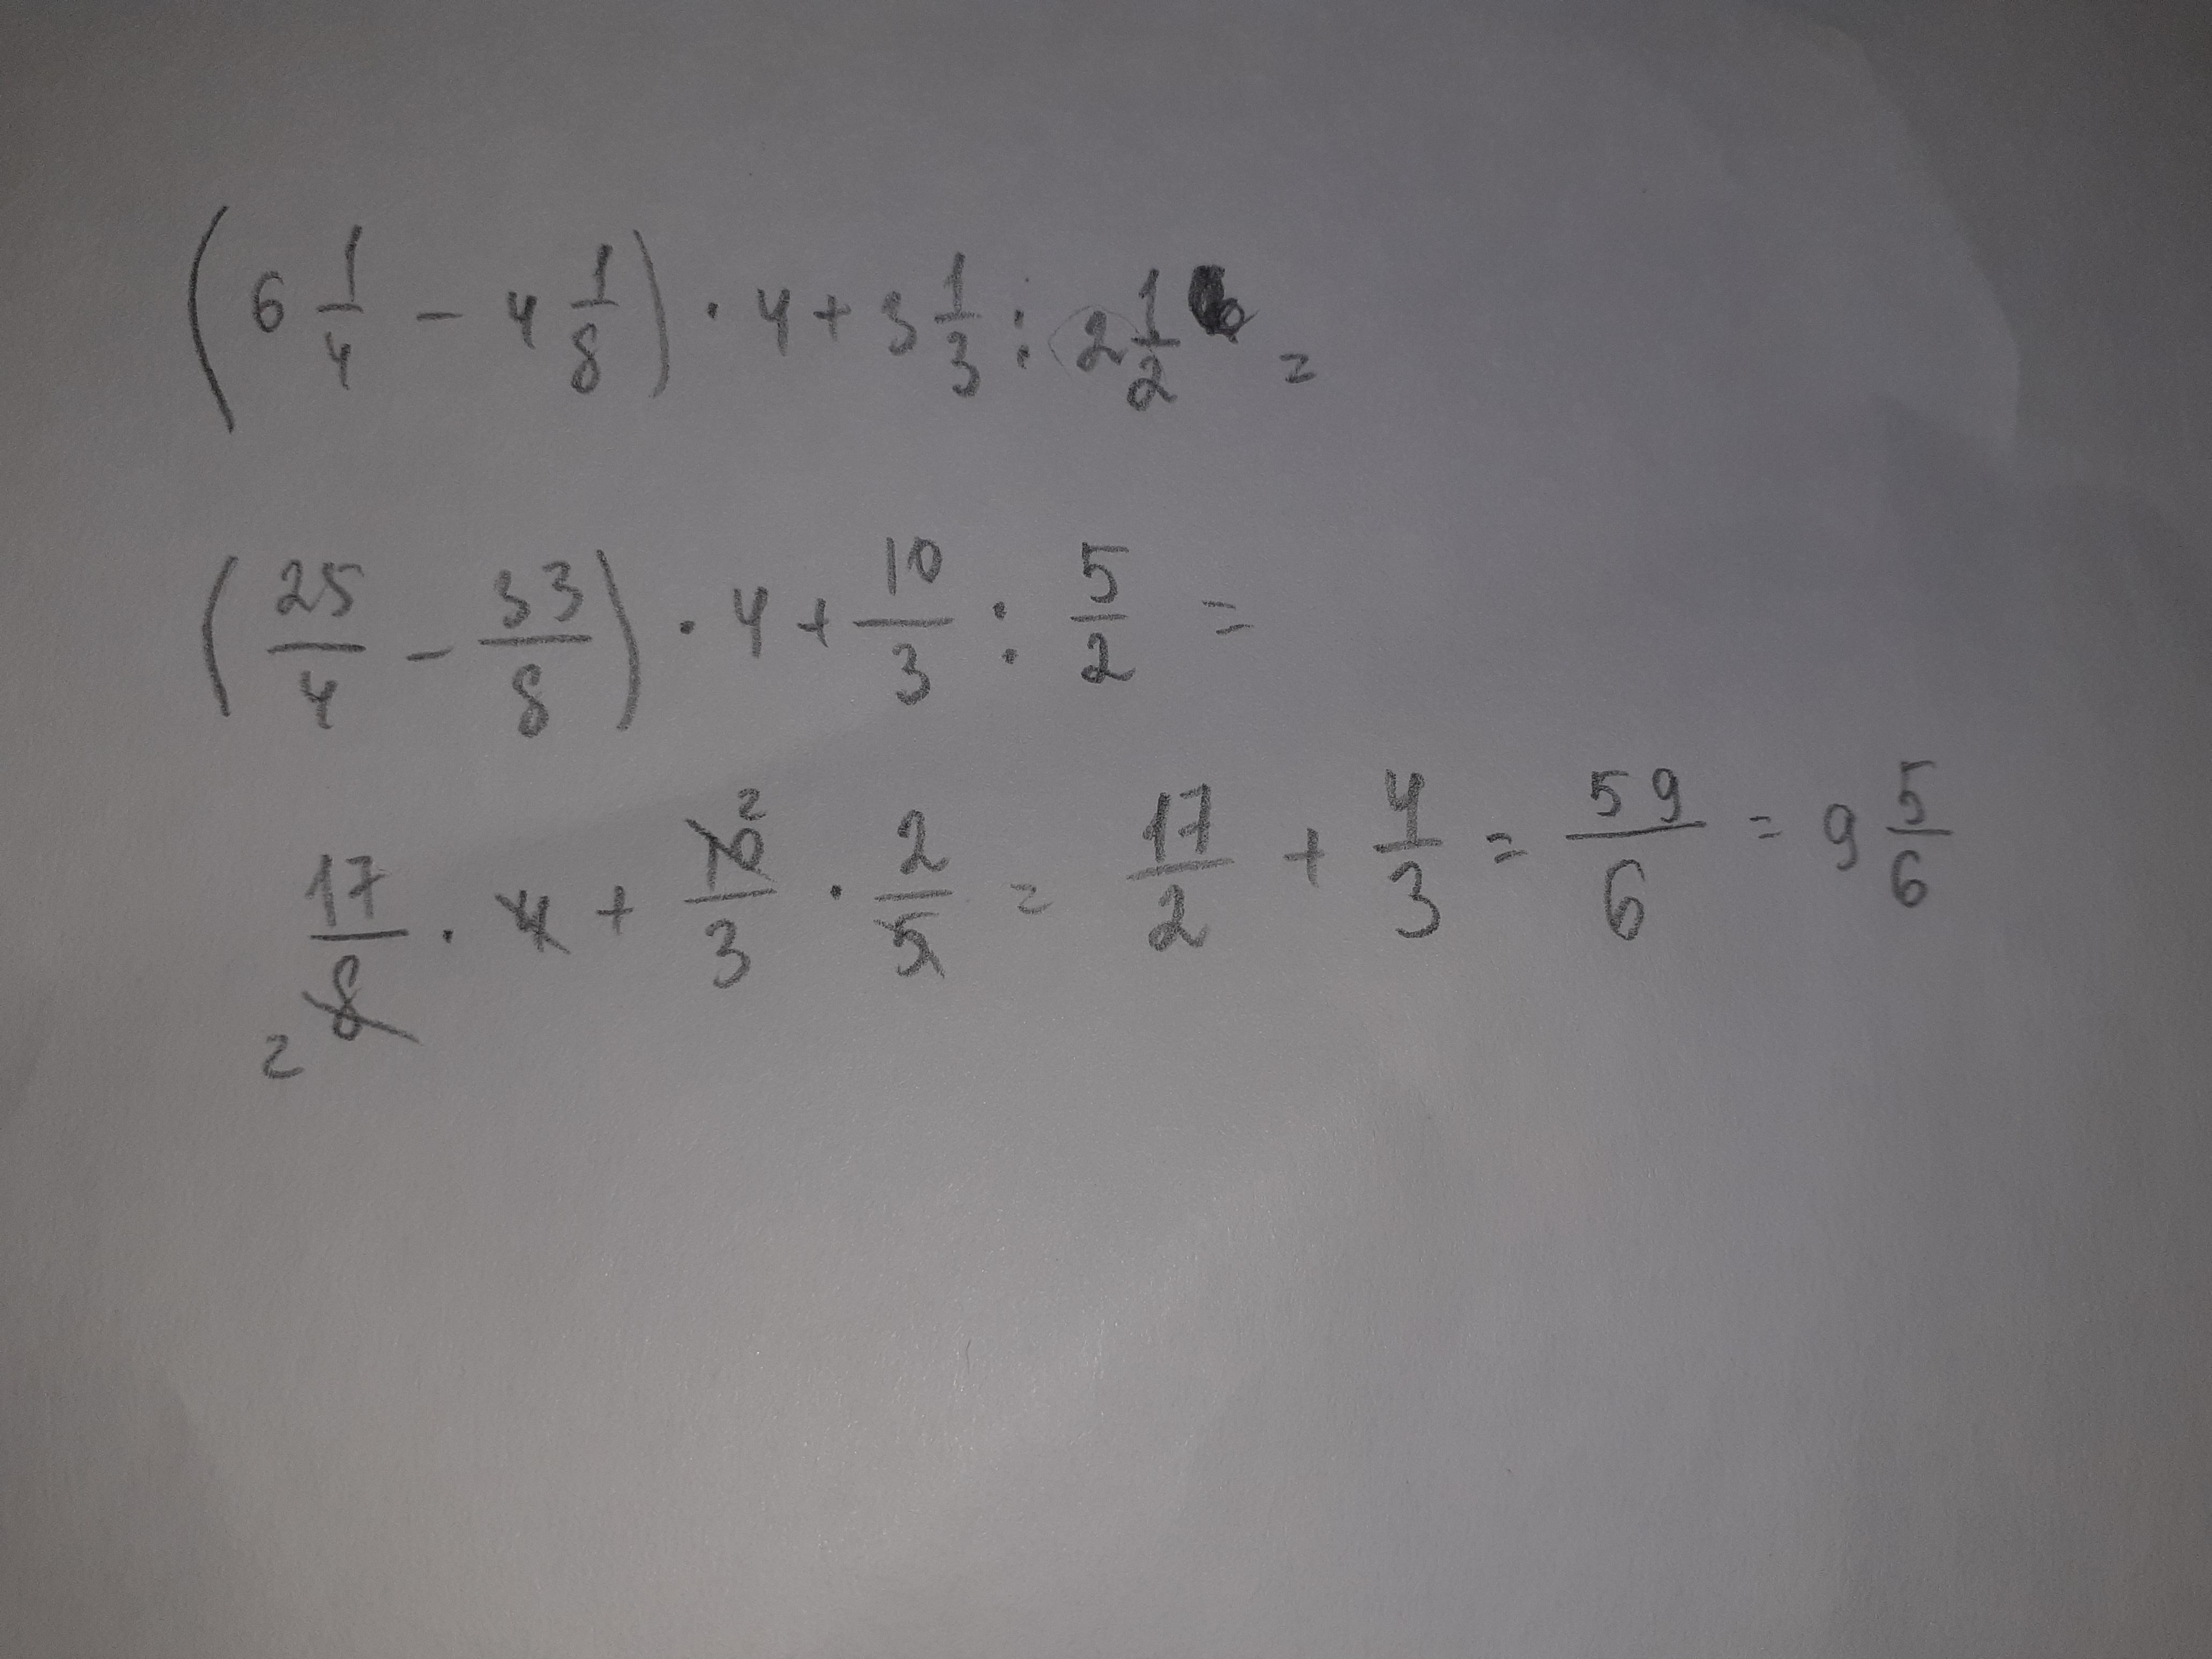 (6 1/4 - 4 1/8) · 4 + 3 1/3 : 2 1/2 =
(25/4 - 33/8) · 4 + 10/3 : 5/2 =
17/8 2 · 4 + 10/3 2 · 2/5 = 17/2 + 4/3 = 59/6 = 9 5/6